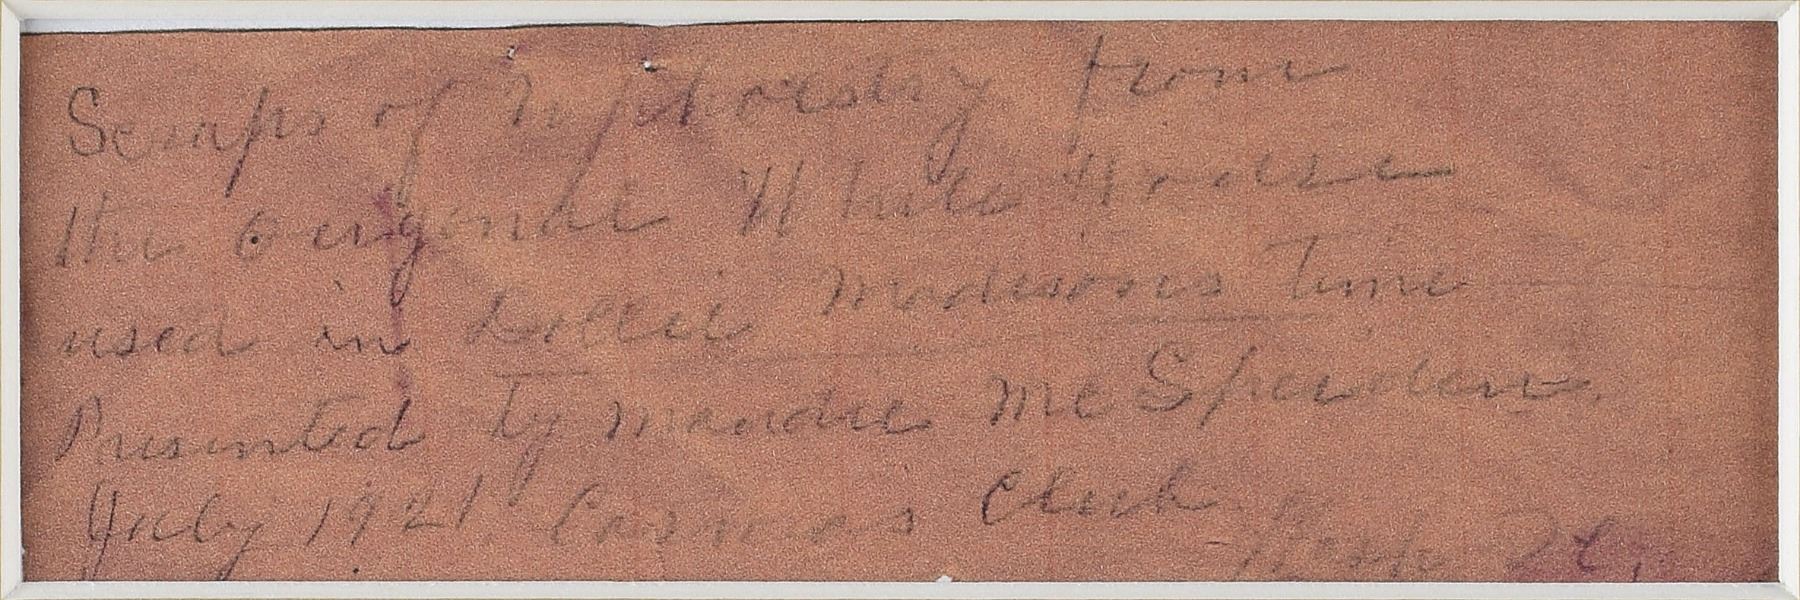 Scraps of Uphorstry from
the Origonal White House
used in Dollie Madisons time
Presented by Maudie McSpeaden.
July 1921 Cosmos Club
Wash